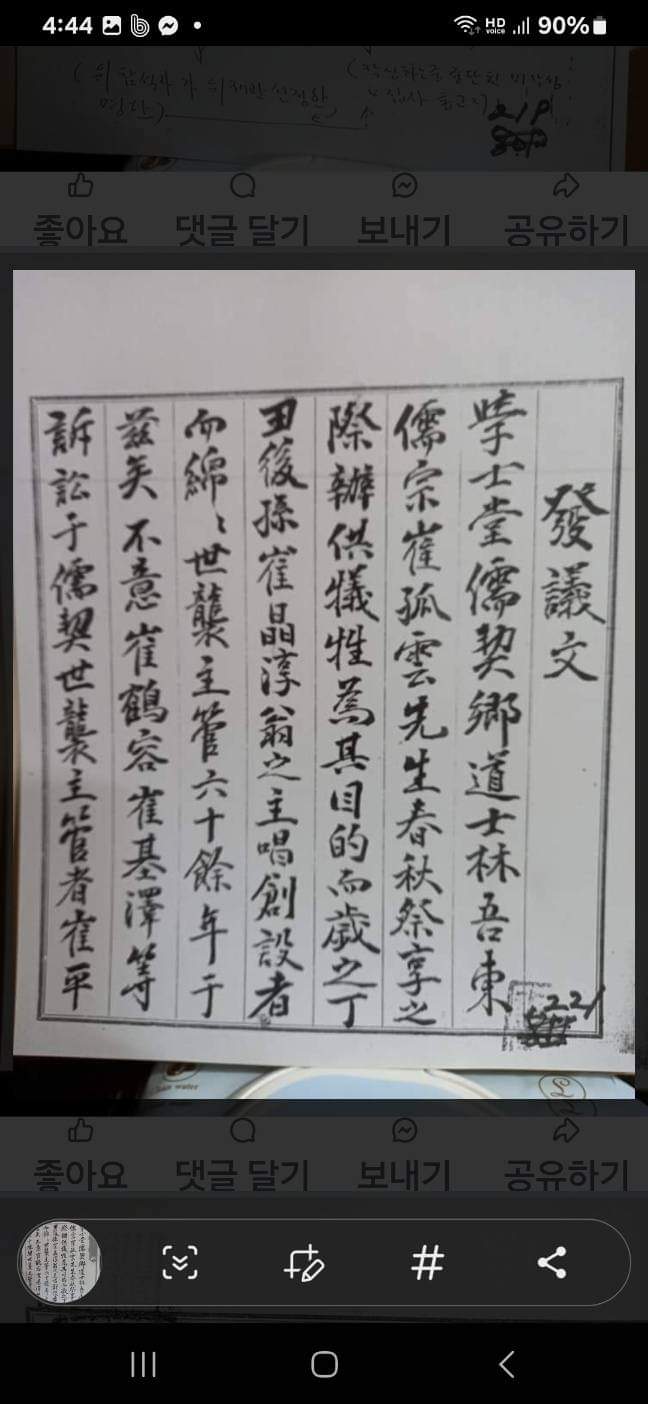 4:44
HD voice
90%
좋아요 댓글 달기 보내기 공유하기
發議文
學士堂儒契鄉道士林吾東
儒宗崔孤雲先生春秋祭享之
際辦供犧牲為其目的而歲之丁
丑後孫崔晶淳翁之主唱創設者
而綿〻世襲主管六十餘年于
茲矣不意崔鶴容崔基澤等
訴訟于儒契世襲主管者崔平
221
좋아요 댓글 달기 보내기 공유하기